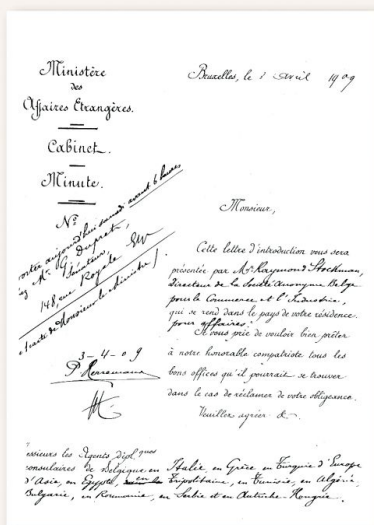 Ministère
des
Affaires Etrangères.
Cabinet.
Minute.
No
Bruxelles, le 1 avril 1909
aujourd'hui samedi avant 6 heures
Mr. G. Dupret,
Sénateur,
148, rue Royale
(carte de Monsieur le Ministre)
3-4-09
Monsieur,
Cette lettre d'introduction vous sera
présentée par Mr Raymond Stockman,
directeur de la Société anonyme Belge
pour le Commerce et l'Industrie,
qui se rend dans le pays de votre résidence
pour affaires.
Je vous prie de vouloir bien prêter
à notre honorable compatriote tous les
bons offices qu'il pourrait se trouver
dans le cas de réclamer de votre obligeance.
Veuillez agréer &.
essieurs les Agents diplques
consulaires de Belgique en Italie, en Grèce en Turquie d'Europe
d'Asie, en Egypte, en Tripolitaine, en Tunisie, en Algérie,
Bulgarie, en Roumanie, en Serbie et en Autriche-Hongrie.